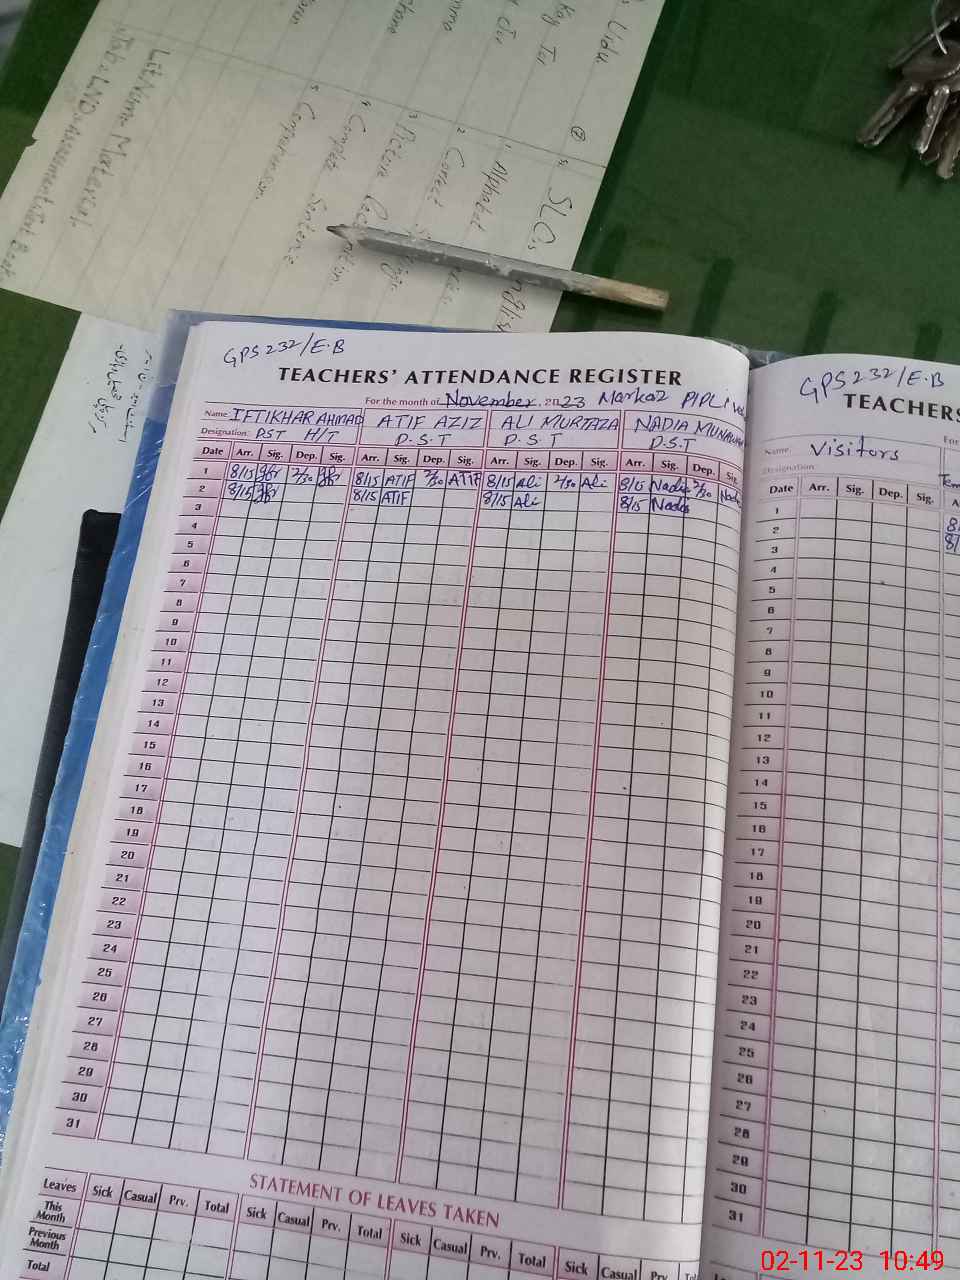 Urdu
SLO's
1 Alphabet
2 Correct
3 Picture
4 Complete Sentence
5 Comprehension
GPS 232/E.B
TEACHERS' ATTENDANCE REGISTER
For the month of November. 2023 Markaz PIPLi
Name: IFTIKHAR AHMAD ATIF AZIZ ALI MURTAZA NADIA
Designation: PST H/T P.S.T P.S.T P.S.T
Date Arr. Sig. Dep. Sig. Arr. Sig. Dep. Sig. Arr. Sig. Dep. Sig. Arr. Sig. Dep. Sig.
1 8/15 2/30 8/15 ATIF 2/30 ATIF 8/15 Ali 2/30 Ali 8/15 Nadia 2/30
2 8/15 8/15 ATIF 8/15 Ali 8/15 Nadia
3
4
5
6
7
8
9
10
11
12
13
14
15
16
17
18
19
20
21
22
23
24
25
26
27
28
29
30
31
STATEMENT OF LEAVES TAKEN
Leaves Sick Casual Prv. Total Sick Casual Prv. Total Sick Casual Prv. Total Sick Casual Prv
This Month
Previous Month
Total
GPS 232/E.B
TEACHERS
Name: Visitors
Designation:
Date Arr. Sig. Dep. Sig.
1
2
3
4
5
6
7
8
9
10
11
12
13
14
15
16
17
18
19
20
21
22
23
24
25
26
27
28
29
30
31
02-11-23 10:49